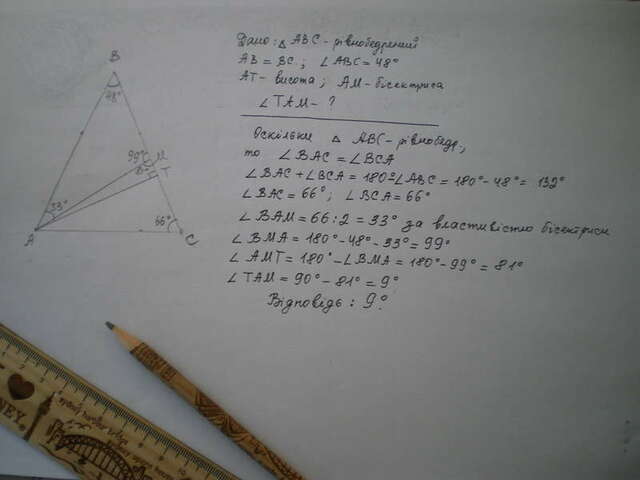 Дано: △ ABC - рівнобедрений
AB = BC; ∠ABC = 48°
AT - висота; AM - бісектриса
∠TAM - ?
Оскільки △ ABC - рівнобедр.,
то ∠BAC = ∠BCA
∠BAC + ∠BCA = 180° - ∠ABC = 180° - 48° = 132°
∠BAC = 66°; ∠BCA = 66°
∠BAM = 66 : 2 = 33° за властивістю бісектриси
∠BMA = 180° - 48° - 33° = 99°
∠AMT = 180° - ∠BMA = 180° - 99° = 81°
∠TAM = 90° - 81° = 9°
Відповідь: 9°.
B
48°
99°
M
81°
T
33°
66°
A
C
NEY